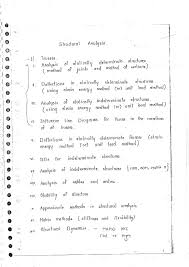 Structural Analysis
Trusses
Analysis of statically determinate structures
(method of joints and method of sections)
Deflections in statically determinate structures
(using strain energy and unit load method)
Analysis of statically indeterminate structures
(using strain energy and unit load method)
Influence Line Diagrams for forces in the members
of the truss
Deflections in statically determinate frames (strain
energy and unit load method)
ILDs for indeterminate structures
Analysis of indeterminate structures
Analysis of cables and arches
Stability of structure
Approximate methods in structural analysis
Matrix methods (stiffness and flexibility)
Structural Dynamics